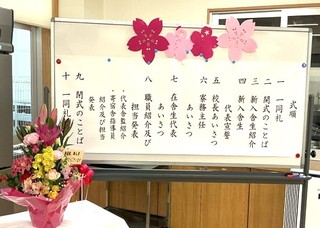 式順
一 一同礼
二 開式のことば
三 新入舎生紹介
四 新入舎生
代表宣誓
五 校長あいさつ
六 寮務主任
あいさつ
七 在舎生代表
あいさつ
八 職員紹介及び
担当発表
・代表舎監紹介
・寄宿舎指導員
紹介及び担当
発表
九 閉式のことば
十 一同礼